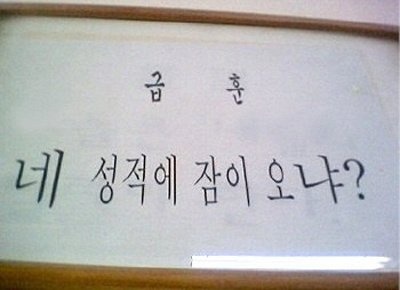 급 훈
네 성적에 잠이 오냐?